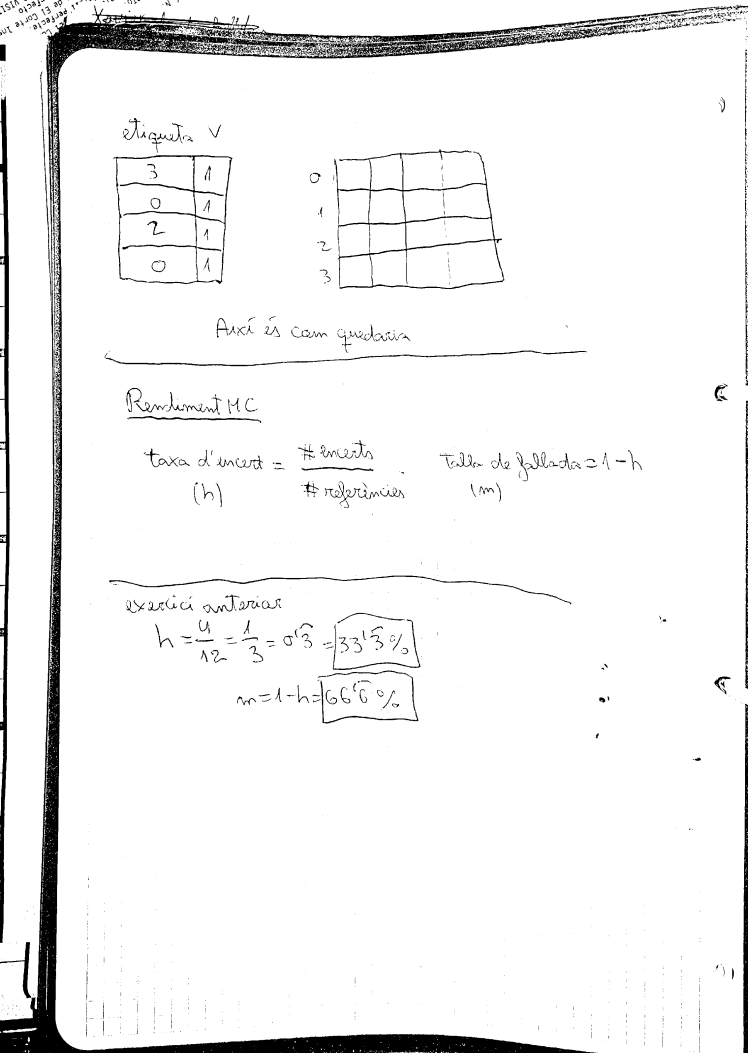 etiqueta V
3 1
0 1
2 1
0 1
0
1
2
3
Així és com quedaria
Rendiment MC
taxa d'encert = # encerts / # referències . Talla de fallada = 1 - h
(h) (m)
exercici anterior
h = 4/12 = 1/3 = 0'3̂ = 33'3̂ %
m = 1 - h = 66'6̂ %